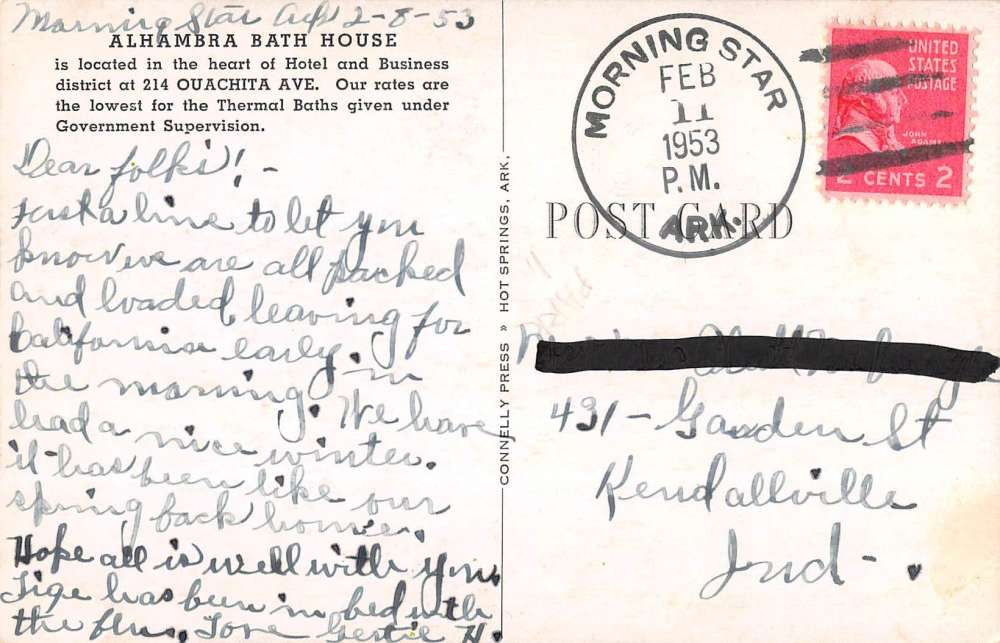 Morning Star Ark 2-8-53
ALHAMBRA BATH HOUSE
is located in the heart of Hotel and Business
district at 214 OUACHITA AVE. Our rates are
the lowest for the Thermal Baths given under
Government Supervision.
Dear folks! -
Just a line to let you
know we are all packed
and loaded leaving for
California early in
the morning. We have
had a nice winter.
it has been like our
spring back home.
Hope all is well with you.
Tige has been in bed with
the flu. Love Gertie H.
CONNELLY PRESS » HOT SPRINGS, ARK.
MORNING STAR
FEB
11
1953
P.M.
ARK.
UNITED
STATES
POSTAGE
JOHN
ADAMS
2 CENTS 2
POST CARD
431 - Garden St
Kendallville
Ind -.